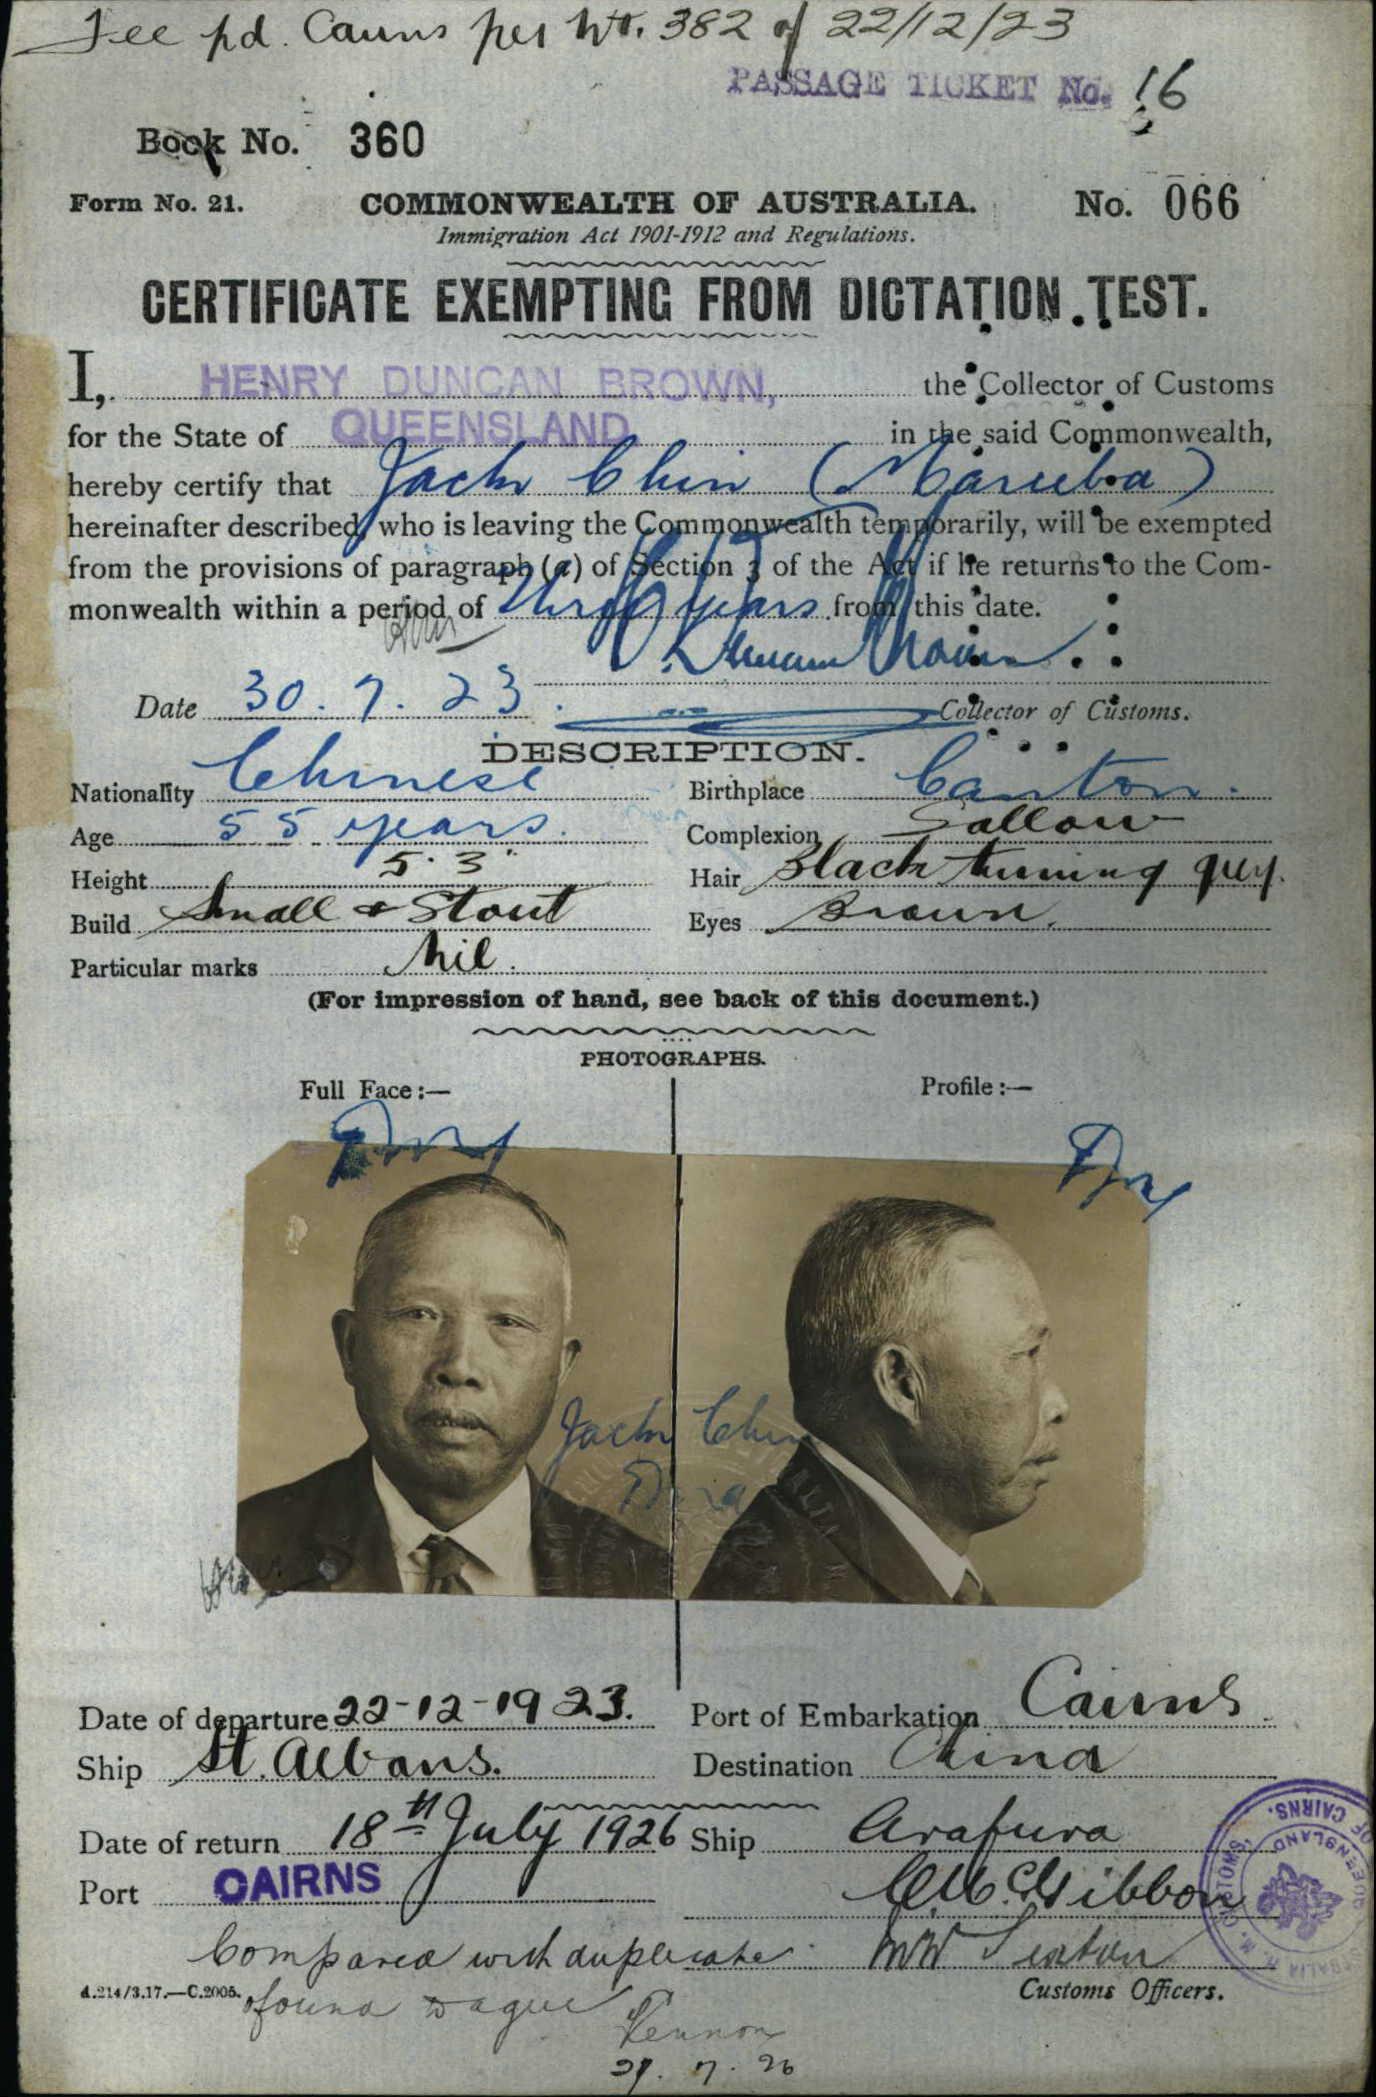 Fee pd. Cairns per No. 382 of 22/12/23
PASSAGE TICKET No. 16
Book No. 360
Form No. 21. COMMONWEALTH OF AUSTRALIA. No. 066
Immigration Act 1901-1912 and Regulations.
CERTIFICATE EXEMPTING FROM DICTATION TEST.
I, HENRY DUNCAN BROWN, the Collector of Customs
for the State of QUEENSLAND in the said Commonwealth,
hereby certify that Jack Chin (Mareeba)
hereinafter described, who is leaving the Commonwealth temporarily, will be exempted
from the provisions of paragraph (a) of Section 3 of the Act if he returns to the Com-
monwealth within a period of three years from this date.
Date 30.7.23. Collector of Customs.
DESCRIPTION.
Nationality Chinese Birthplace Canton.
Age 55 years. Complexion Sallow
Height 5' 3" Hair Black turning grey.
Build Small & Stout Eyes Brown.
Particular marks Nil.
(For impression of hand, see back of this document.)
PHOTOGRAPHS.
Full Face:— Profile:—
Jack Chin
Date of departure 22-12-1923. Port of Embarkation Cairns
Ship St. Albans. Destination China
Date of return 18th July 1926 Ship Arafura
Port CAIRNS
Compared with duplicate
A.214/3.17.—C.2005. found to agree Customs Officers.
Lennon
29.7.26